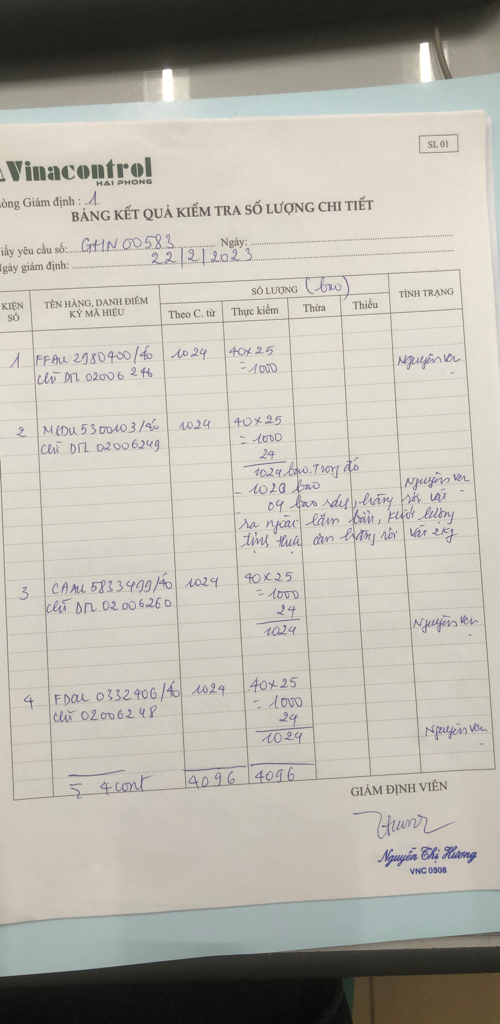 SL 01
Vinacontrol
HAI PHONG
òng Giám định : 1.
BẢNG KẾT QUẢ KIỂM TRA SỐ LƯỢNG CHI TIẾT
iấy yêu cầu số: GHN 00583 Ngày:
Ngày giám định: 22/2/2023
KIỆN SỐ TÊN HÀNG, DANH ĐIỂM KÝ MÃ HIỆU SỐ LƯỢNG (bao) TÌNH TRẠNG
Theo C. từ Thực kiểm Thừa Thiếu
1 FFAU 2980400/40 1024 40x25 Nguyên vẹn
chì DN 02006246 = 1000
2 MEDU 5300103/40 1024 40x25
chì DN 02006249 = 1000
24
1024 bao. Trong đó
- 1023 bao Nguyên vẹn
- 01 bao rách, hàng rơi vãi
ra ngoài lấm bẩn, khối lượng
tịnh thực cân hàng rơi vãi 2kg
3 CAAU 5833499/40 1024 40x25
chì DN 02006260 = 1000
24
1024 Nguyên vẹn
4 FDCU 0332406/40 1024 40x25
chì 02006248 = 1000
24
1024 Nguyên vẹn
Σ 4 cont 4096 4096
GIÁM ĐỊNH VIÊN
Nguyễn Thị Hương
VNC 0508